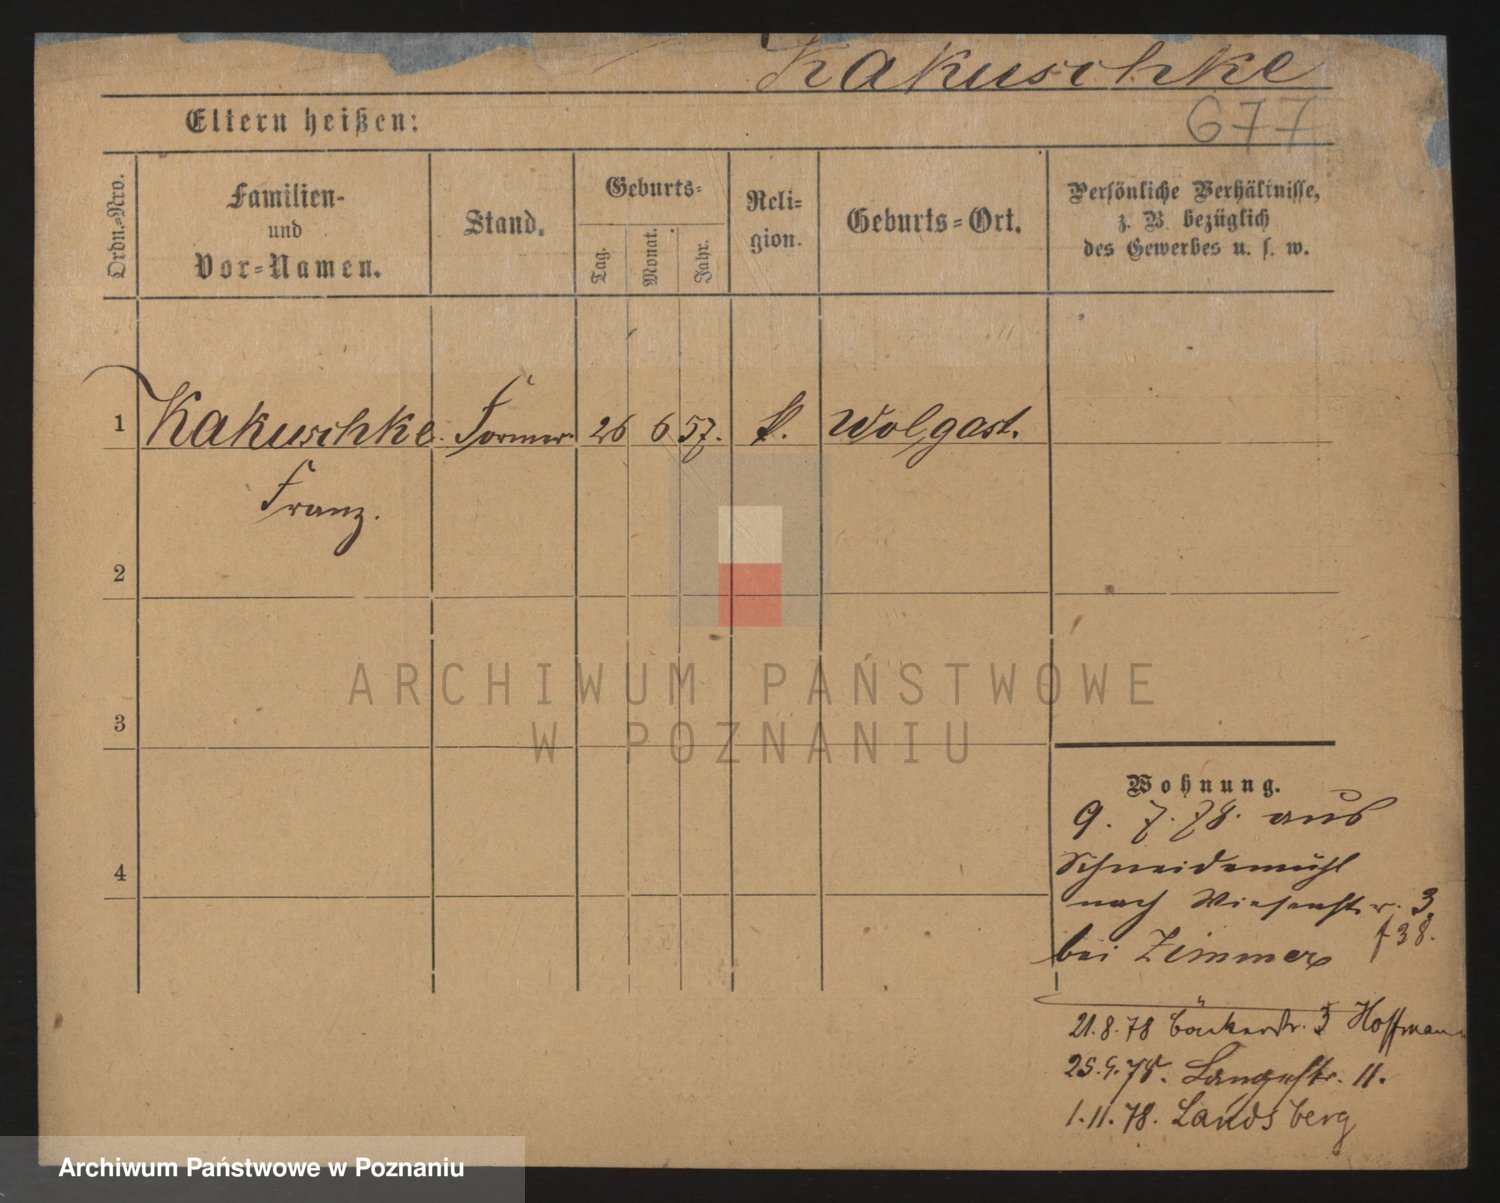 Kakuschke
Eltern heißen:
677
Ordn.-Nro.
Familien-
und
Vor-Namen.
Stand.
Geburts-
Tag.
Monat.
Jahr.
Reli-
gion.
Geburts-Ort.
Persönliche Verhältnisse,
z. B. bezüglich
des Gewerbes u. s. w.
1 Kakuschke. Former 26 6 57. Wolgast.
Franz.
2
3
4
Wohnung.
9. 7. 78. aus
Schneidemühl
nach Wiesenstr. 3
f 38.
bei Zimmer
21.8.78 Bäckerstr. 3 Hoffmann
25.9.78. Langestr. 11.
1.11.78. Landsberg
ARCHIWUM PAŃSTWOWE
W POZNANIU
Archiwum Państwowe w Poznaniu